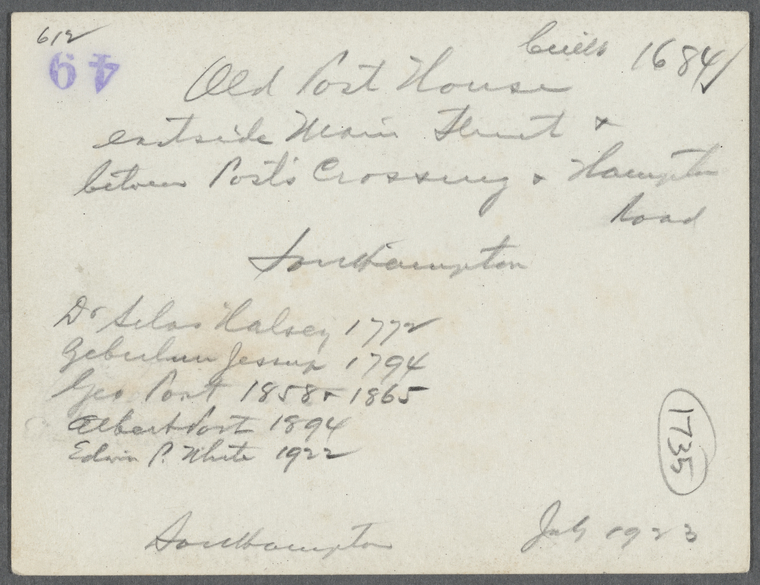 612
49
built 1684
Old Post House
eastside Main Street &
between Post's Crossing & Hampton
Road
Southampton
Dr Silas Halsey 1772
Zebulun Jessup 1794
Geo. Post 1858 & 1865
Albert Post 1894
Edwin P. White 1922
1735
Southampton July 1923